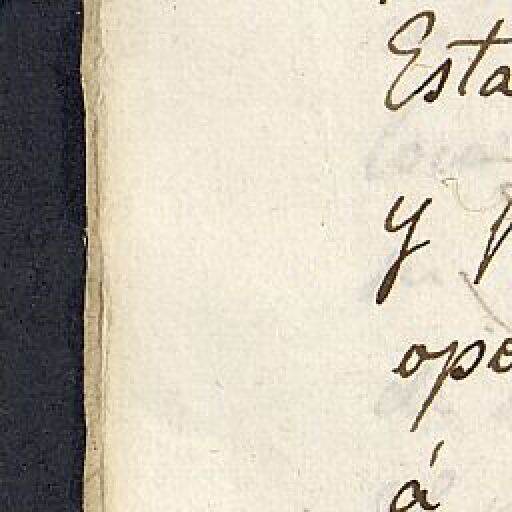 Esta
y p
ope
á